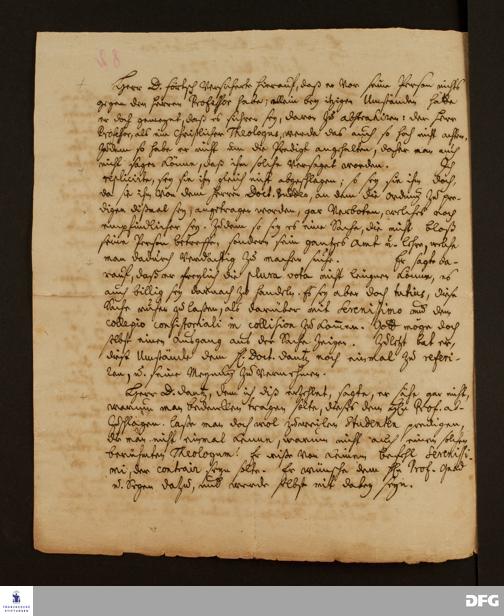 82
Herr D. Förtsch versicherte hierauf, daß er vor seine Person nichts
gegen den Herrn Professor habe; allein bey itzigen Umständen hätte
er doch gemeynet, daß es sicherer sey, davon zu abstrahiren: der Herr
Professor, als ein Christlicher Theologus, werde das auch so hoch nicht achten.
Zudem so habe er nicht um die Predigt angehalten, daher man auch
nicht sagen könne, daß ihm solche versaget worden. Ich
replicirte, sey sie ihm gleich nicht abgeschlagen, so sey sie ihm doch,
da sie ihm von dem Herrn Doct. an dem die Ordnung zu pre-
digen dißmal sey, angetragen worden, gar verboten, welches noch
empfindlicher sey. Zudem so sey es eine Sache, die nicht bloß
seine Person betreffe, sondern sein gantzes Amt u. Lehre, welche
man dadurch verdächtig zu machen suche. Er sagte da-
rauf, daß er freylich die plura vota nicht läugnen könne, es
auch billig sey darnach zu handeln. Es sey aber doch tutius, diese
Sache ruhen zu lassen, als darüber mit Serenissimo und dem
collegio consistoriali in collision zu kommen. Gott möge doch
selbst einen Ausgang aus der Sache zeigen. Zuletzt bat er,
diese Umstände dem H. Doct. Dantz noch einmal zu referi-
ren, u. seine Meynung zu vernehmen.
Herr D. Dantz, dem ich diß erzehlet, sagte, er sehe gar nicht,
warum man bedencken tragen solte, dieses dem Hn Prof. an-
zuschlagen. Lasse man doch wol zuweilen Studenten predigen,
die man nicht einmal kenne, warum nicht auch einen solchen
berühmten Theologum? Er wisse von keinem Befehl Serenissi-
mi, der contrair seyn solte. Er wünsche dem Hn Prof.
u. Segen dazu, und werde selbst mit dabey seyn.
FRANCKESCHE
STIFTUNGEN
DFG